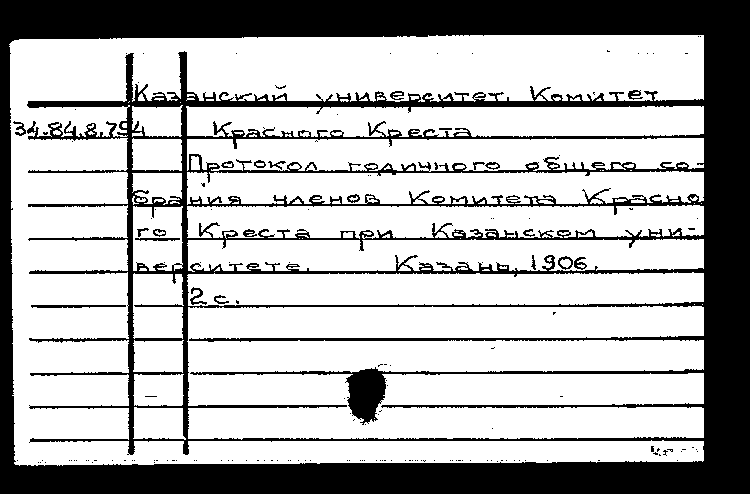 Казанский университет. Комитет
34.84.8.754 Красного Креста
Протокол годичного общего со-
брания членов Комитета Красно
го Креста при Казанском уни-
верситете. Казань, 1906.
2 с.